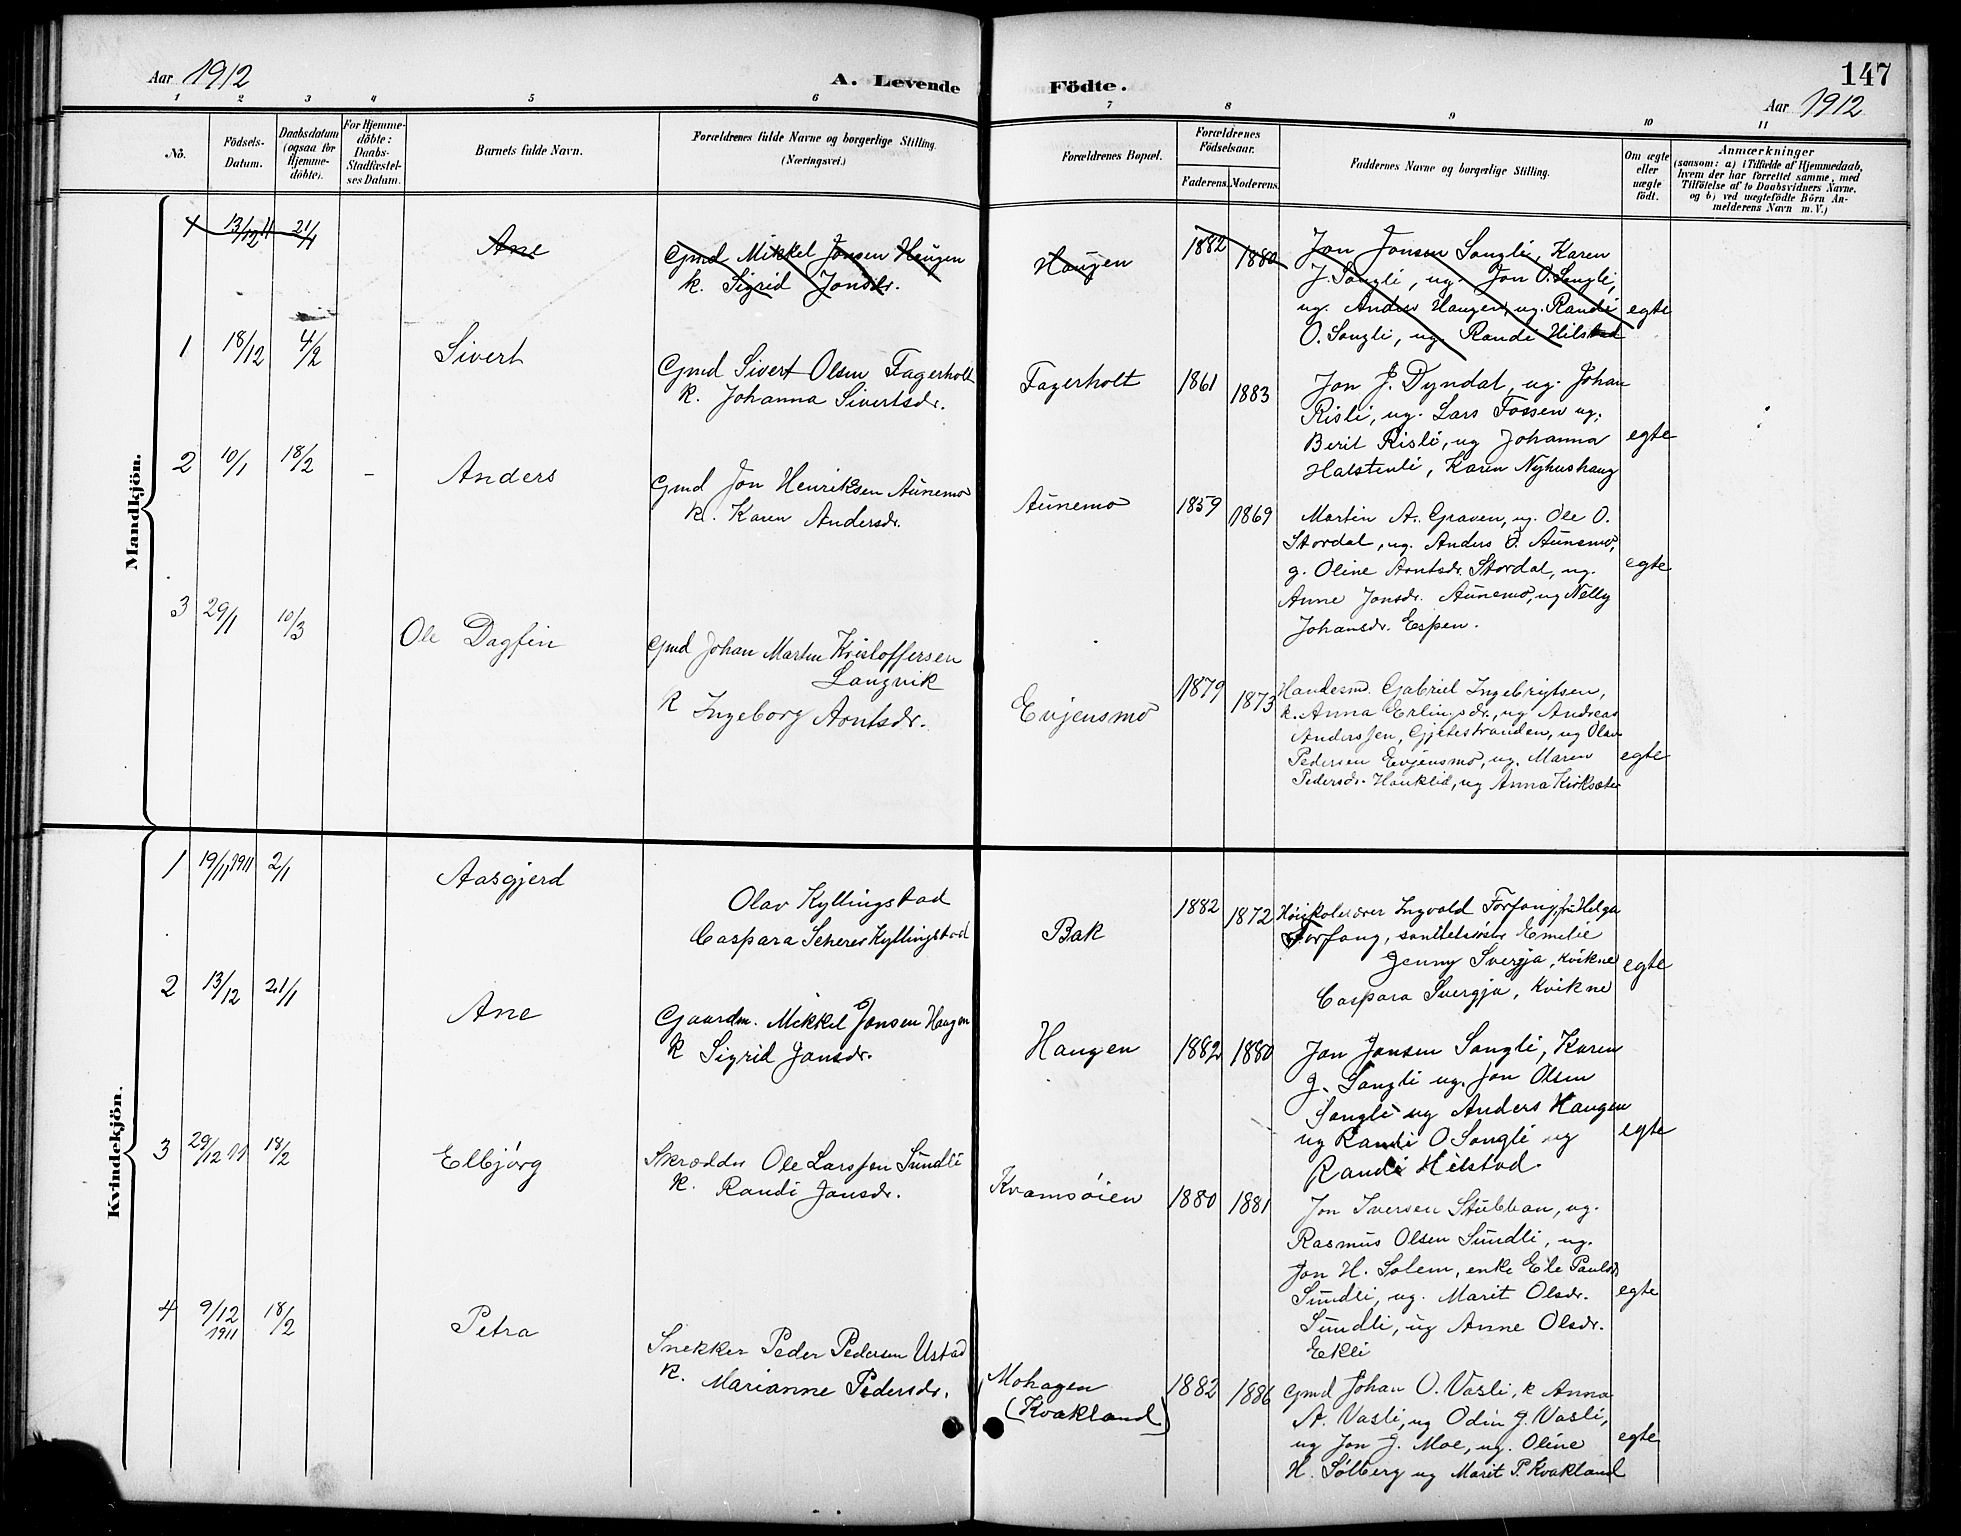 Aar 1912
A. Levende Födte.
147
Aar 1912
1 2 3 4 5 6 7 8 9 10 11
No.
Födsels-
Datum.
Daabsdatum
(ogsaa for
Hjemme-
döbte).
For Hjemme-
döbte:
Daabs-
Stadfæstel-
ses Datum.
Barnets fulde Navn.
Forældrenes fulde Navne og borgerlige Stilling.
(Næringsvei.)
Forældrenes Bopæl.
Forældrenes
Födselsaar.
Faderens. Moderens.
Faddernes Navne og borgerlige Stilling.
Om ægte
eller
uægte
födt.
Anmærkninger
(saasom: a) i Tilfælde af Hjemmedaab,
hvem der har forrettet samme, med
Tilföielse af to Daabsvidners Navne,
og b) ved uægtefödte Börn An-
melderens Navn m. V.)
Mandkjön.
13/12 11 21/1 Ane
Gmd Mikkel Jonsen Haugen
k. Sigrid Jonsdr.
Haugen 1882 1880
Jon Jonsen Songli, Karen
J. Songli, ug. Jon O. Songli,
ug. Anders Haugen, ug. Randi
O. Songli, ug. Randi Hilstad
egte
1 18/12 4/2 Sivert
Gmd Sivert Olsen Fagerholt
k. Johanna Sivertsdr.
Fagerholt 1861 1883
Jon J. Dyndal, ug. Johan
Risli, ug. Lars Fossen ug.
Berit Risli, ug Johanna
Halstenli, Karen Nyhushaug
egte
2 10/1 18/2 - Anders
Gmd Jon Henriksen Aunemo
k. Karen Andersdr.
Aunemo 1859 1869
Martin A. Graven, ug. Ole O.
Stordal, ug. Anders O. Aunemo,
g. Oline Arntsdr. Stordal, ug.
Anne Jonsdr. Aunemo, ug Nelly
Johansdr. Espen.
egte
3 29/1 10/3 Ole Dagfin
Gmd Johan Martin Kristoffersen
Langvik
k Ingeborg Arntsdr.
Evjensmo 1879 1873
Handesm. Gabriel Ingebrigtsen,
k. Anna Erlingsdr., ug Andreas
Anderssen, Gjetestranden, ug Olav
Pedersen Evjensmo, ug. Maren
Pedersdr. Hauklid, ug Anna Kirksæter
egte
Kvindekjön.
1 19/11 1911 2/1 Aasgjerd
Olav Kyllingstad
Caspara Scherer Kyllingstad
Bak 1882 1872
Höiskolelærer Ingvald Forfang, fru Helga
Forfang, Emelie
Jenny Svergja, Kvikne
Caspara Svergja, Kvikne
egte
2 13/12 21/1 Ane
Gaardm. Mikkel Jonsen Haugen
k Sigrid Jonsdr.
Haugen 1882 1880
Jon Jonsen Songli, Karen
J. Songli ug. Jon Olsen
Songli ug Anders Haugen
ug Randi O Songli ug
Randi Hilstad.
egte
3 29/12 11 18/2 Elbjörg
Skrædder Ole Larssen Sundli
k. Randi Jonsdr.
Kvamsöien 1880 1881
Jon Iversen Stubban, ug.
Rasmus Olsen Sundli, ug.
Jon H. Solem, enke Ele Paulsdr
Sundli, ug. Marit Olsdr.
Sundli, ug Anne Olsdr.
Ekli
egte
4 9/12 1911 18/2 Petra
Snekker Peder Pedersen Ustad
k. Marianne Pedersdr.
Mohagen
(Kvakland)
1882 1886
Gmd Johan O. Vasli, k Anna
A. Vasli, ug Odin J. Vasli,
ug Jon J. Moe, ug. Oline
H. Sölberg ug Marit P. Kvakland
egte